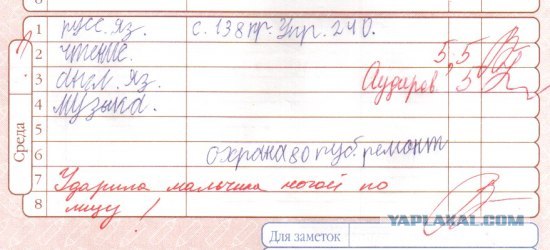 1 русс. яз. с. 138 пр. Упр. 240.
2 чтение. 5, 5
3 англ. яз. Аудиров. 5
4 музыка.
5
6 охрана 80 руб. ремонт
7 Ударила мальчика ногой по
8 лицу!
Среда
Для заметок
YAPLAKAL.COM